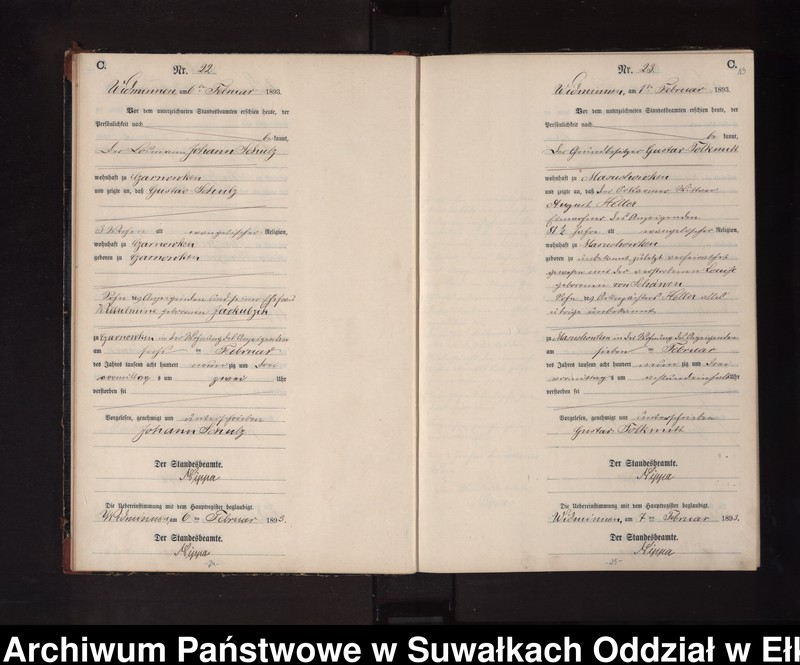 C.
Nr. 22
Widminnen, am 6ten Februar 1893.
Vor dem unterzeichneten Standesbeamten erschien heute, der
Persönlichkeit nach
be kannt,
der Losmann Johann Schulz
wohnhaft zu Czarnowken
und zeigte an, daß Gustav Schulz
3 Wochen alt evangelischer Religion,
wohnhaft zu Czarnowken
geboren zu Czarnowken
Sohn des Anzeigenden und seiner Ehefrau
Wilhelmine geborenen
zu Czarnowken in der Wohnung des Anzeigenden
am sechs ten Februar
des Jahres tausend acht hundert neun zig und drei
vormittag s um zwei Uhr
verstorben sei
Vorgelesen, genehmigt und unterschrieben
Johann Schulz
Der Standesbeamte.
Nippa
Die Uebereinstimmung mit dem Hauptregister beglaubigt.
Widminnen, am 6ten Februar 1893.
Der Standesbeamte.
Nippa
C.
Nr. 23.
Widminnen, am 7ten Februar 1893.
Vor dem unterzeichneten Standesbeamten erschien heute, der
Persönlichkeit nach
be kannt,
der Grundbesitzer Gustav Folkmitt
wohnhaft zu Masuchowken
und zeigte an, daß der
August Heller
des Anzeigenden
81 ½ Jahre alt evangelischer Religion,
wohnhaft zu Masuchowken
geboren zu unbekannt, zuletzt verheirathet
gewesen mit der verstorbenen Louise
geborenen von
Sohn des Heller alles
übrige unbekannt
zu Masuchowken in der Wohnung des Anzeigenden
am sieben ten Februar
des Jahres tausend acht hundert neun zig und drei
vormittag s um Uhr
verstorben sei
Vorgelesen, genehmigt und unterschrieben
Gustav Folkmitt
Der Standesbeamte.
Nippa
Die Uebereinstimmung mit dem Hauptregister beglaubigt.
Widminnen, am 7ten Februar 1893.
Der Standesbeamte.
Nippa
Archiwum Państwowe w Suwałkach Oddział w Eł